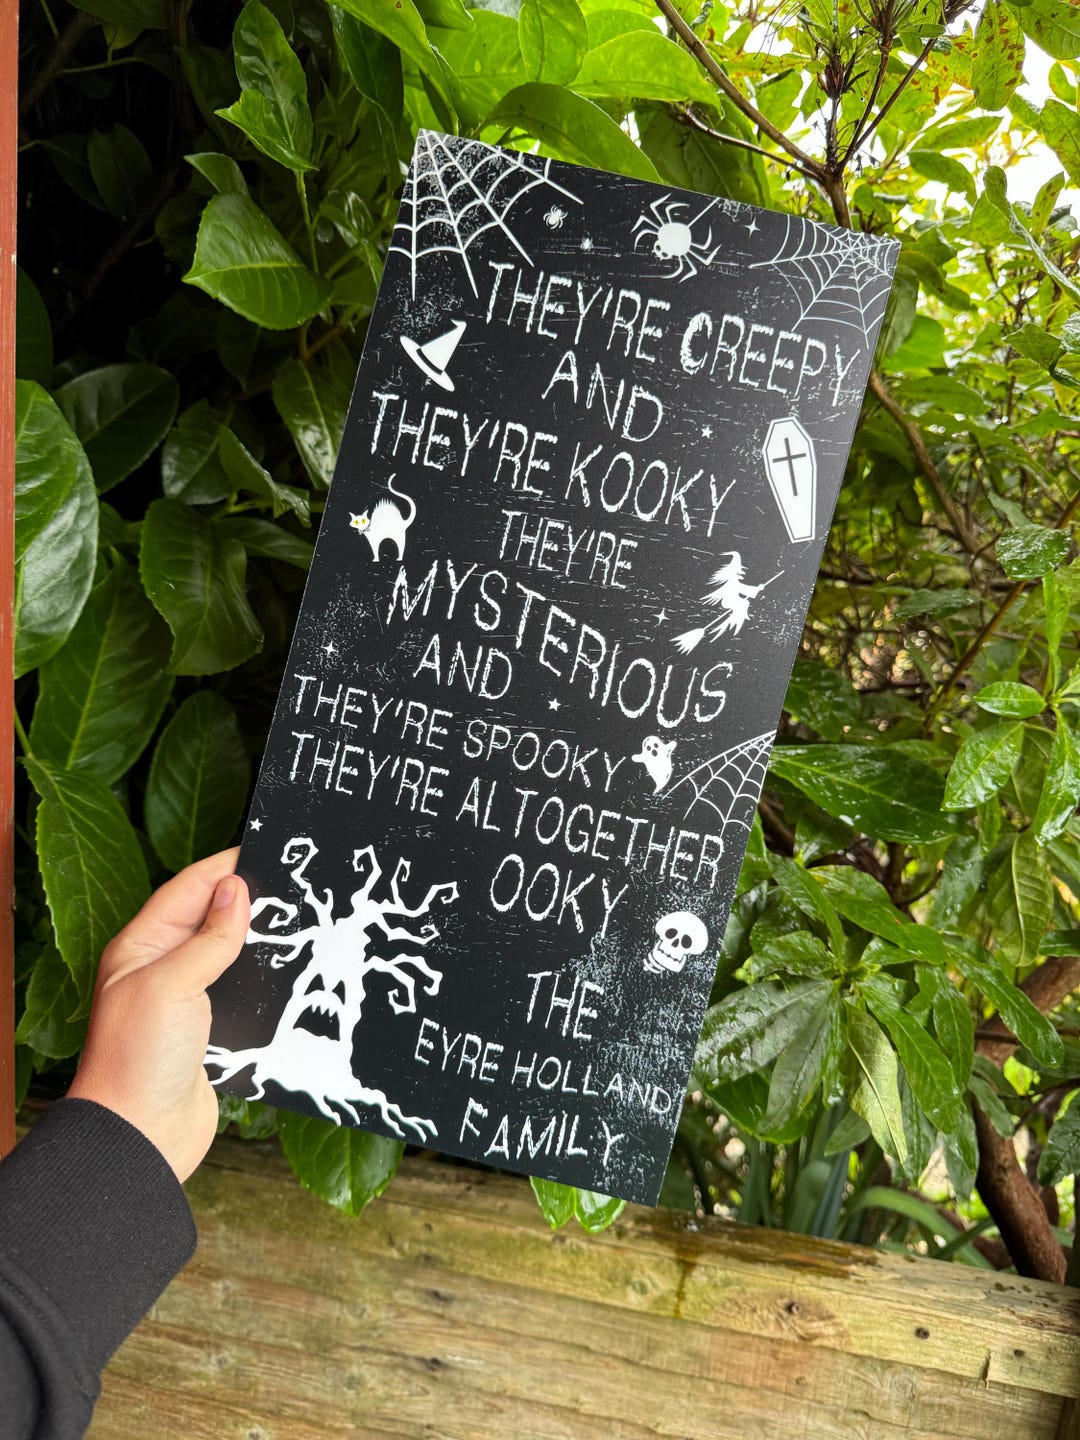 THEY'RE CREEPY
AND
THEY'RE KOOKY
THEY'RE
MYSTERIOUS
AND
THEY'RE SPOOKY
THEY'RE ALTOGETHER
OOKY
THE
EYRE HOLLAND
FAMILY